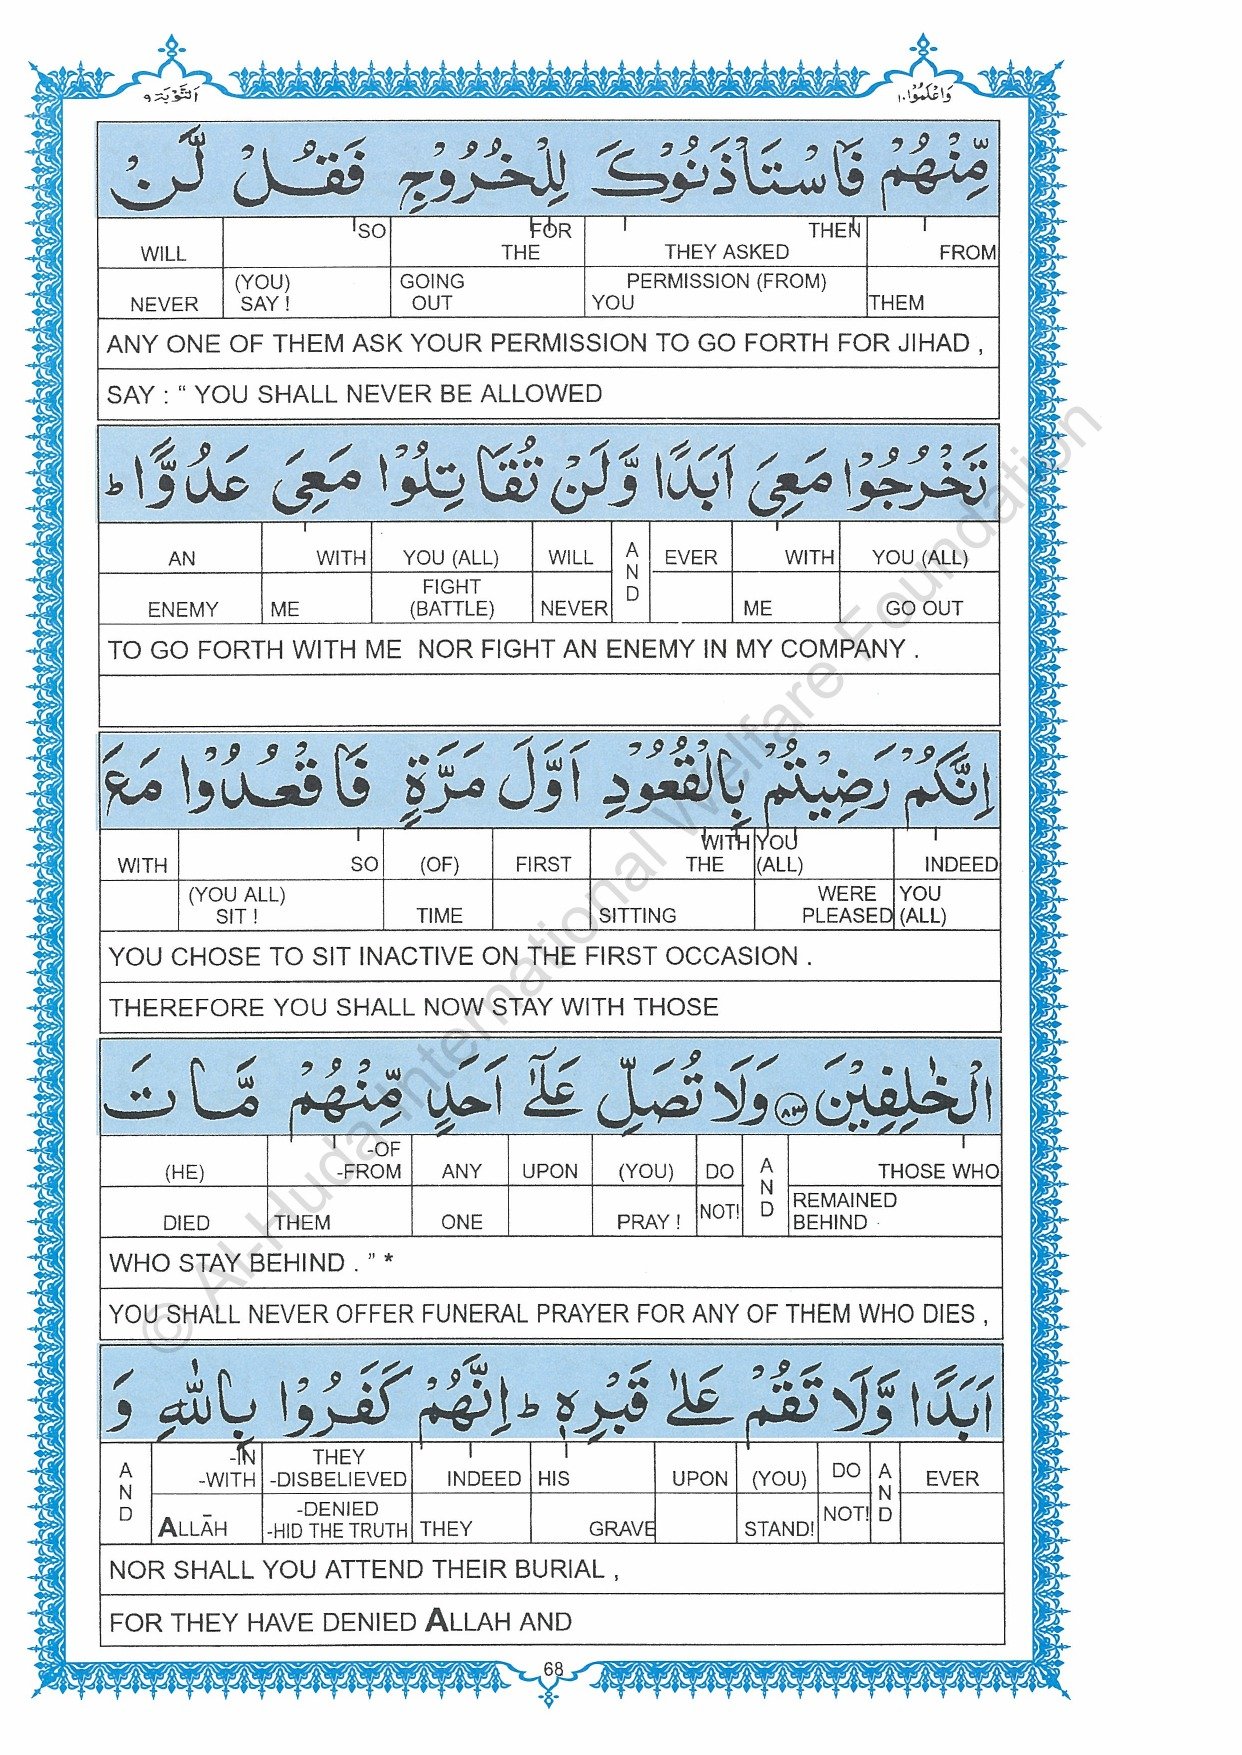 وَاعْلَمُوْٓا ١٠
اَلتَّوْبَة ٩
مِّنْهُمْ فَاسْتَاْذَنُوْكَ لِلْخُرُوْجِ فَقُلْ لَّنْ
WILL SO FOR THE THEY ASKED THEN FROM
NEVER (YOU) SAY ! GOING OUT YOU PERMISSION (FROM) THEM
ANY ONE OF THEM ASK YOUR PERMISSION TO GO FORTH FOR JIHAD ,
SAY : “ YOU SHALL NEVER BE ALLOWED
تَخْرُجُوْا مَعِىَ اَبَدًا وَّلَنْ تُقَاتِلُوْا مَعِىَ عَدُوًّا ؕ
AN WITH YOU (ALL) WILL AND EVER WITH YOU (ALL)
ENEMY ME FIGHT (BATTLE) NEVER ME GO OUT
TO GO FORTH WITH ME NOR FIGHT AN ENEMY IN MY COMPANY .
اِنَّكُمْ رَضِيْتُمْ بِالْقُعُوْدِ اَوَّلَ مَرَّةٍ فَاقْعُدُوْا مَعَ
WITH SO (OF) FIRST WITH THE YOU (ALL) INDEED
(YOU ALL) SIT ! TIME SITTING WERE PLEASED YOU (ALL)
YOU CHOSE TO SIT INACTIVE ON THE FIRST OCCASION .
THEREFORE YOU SHALL NOW STAY WITH THOSE
الْخٰلِفِيْنَ ﴿٨٣﴾ وَلَا تُصَلِّ عَلٰٓى اَحَدٍ مِّنْهُمْ مَّاتَ
(HE) -OF -FROM ANY UPON (YOU) DO AND THOSE WHO
DIED THEM ONE PRAY ! NOT! REMAINED BEHIND
WHO STAY BEHIND . ” *
YOU SHALL NEVER OFFER FUNERAL PRAYER FOR ANY OF THEM WHO DIES ,
اَبَدًا وَّلَا تَقُمْ عَلٰى قَبْرِهٖ ؕ اِنَّهُمْ كَفَرُوْا بِاللّٰهِ وَ
AND -IN -WITH THEY -DISBELIEVED INDEED HIS UPON (YOU) DO AND EVER
ALLĀH -DENIED -HID THE TRUTH THEY GRAVE STAND! NOT!
NOR SHALL YOU ATTEND THEIR BURIAL ,
FOR THEY HAVE DENIED ALLAH AND
68
© Al-Huda International Welfare Foundation